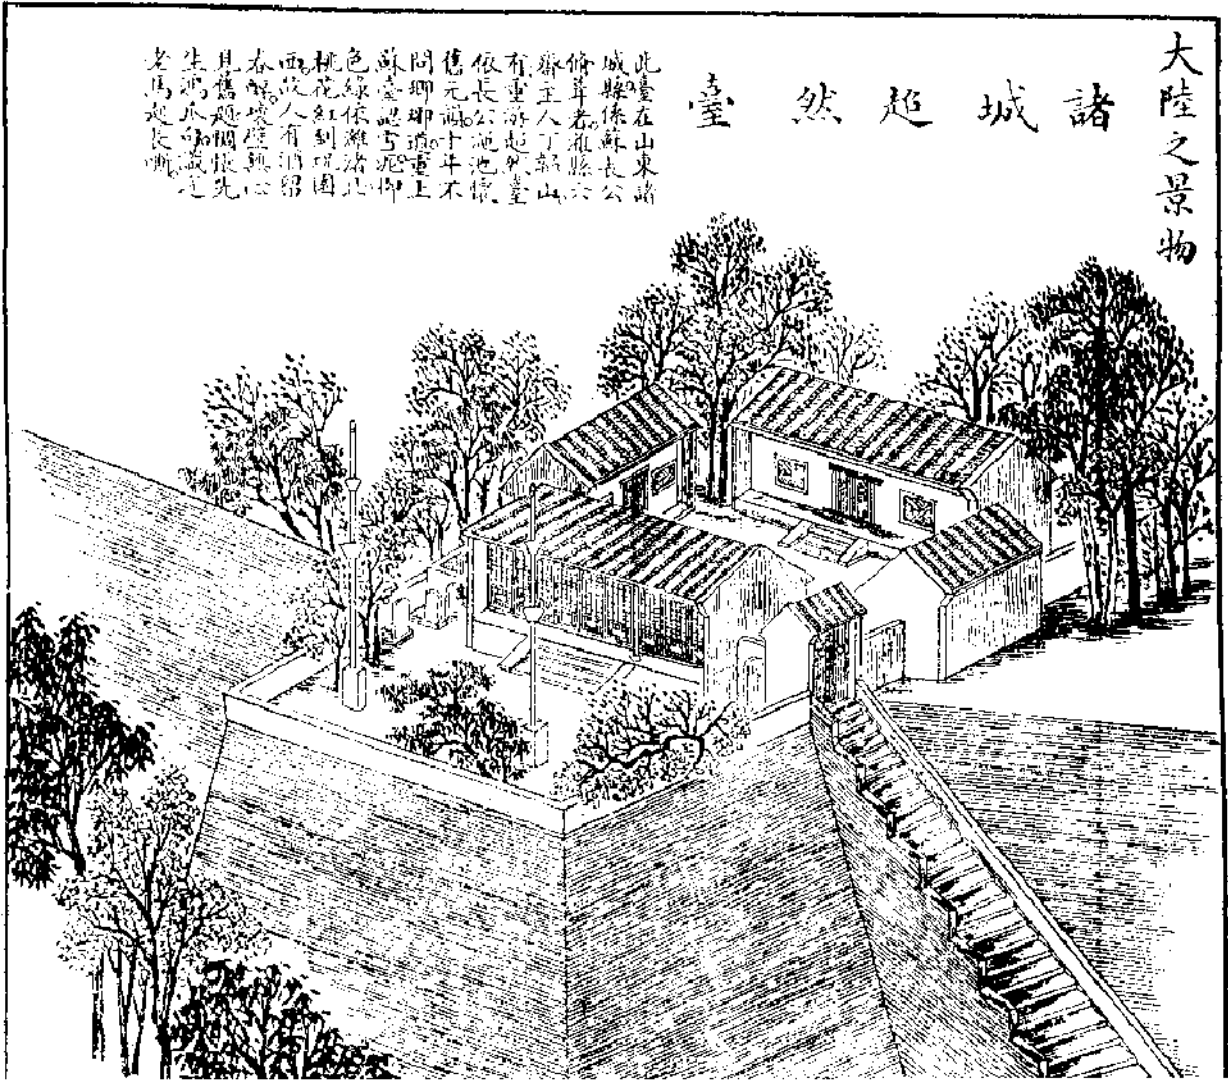 大陸之景物
諸城超然臺
此臺在山東諸
城縣係蘇長公
脩葺者。濰縣六
齋主人丁山
有重游超然臺
依長公澠池懷
舊元韻。十年不
問瑯琊道。重上
蘇臺認雪泥。柳
色綠依濰渚北
桃花紅到園
西。故人有酒留
春醉。壞壁無心
見舊題。惆悵先
生鴻爪句。識途
老馬起長嘶。